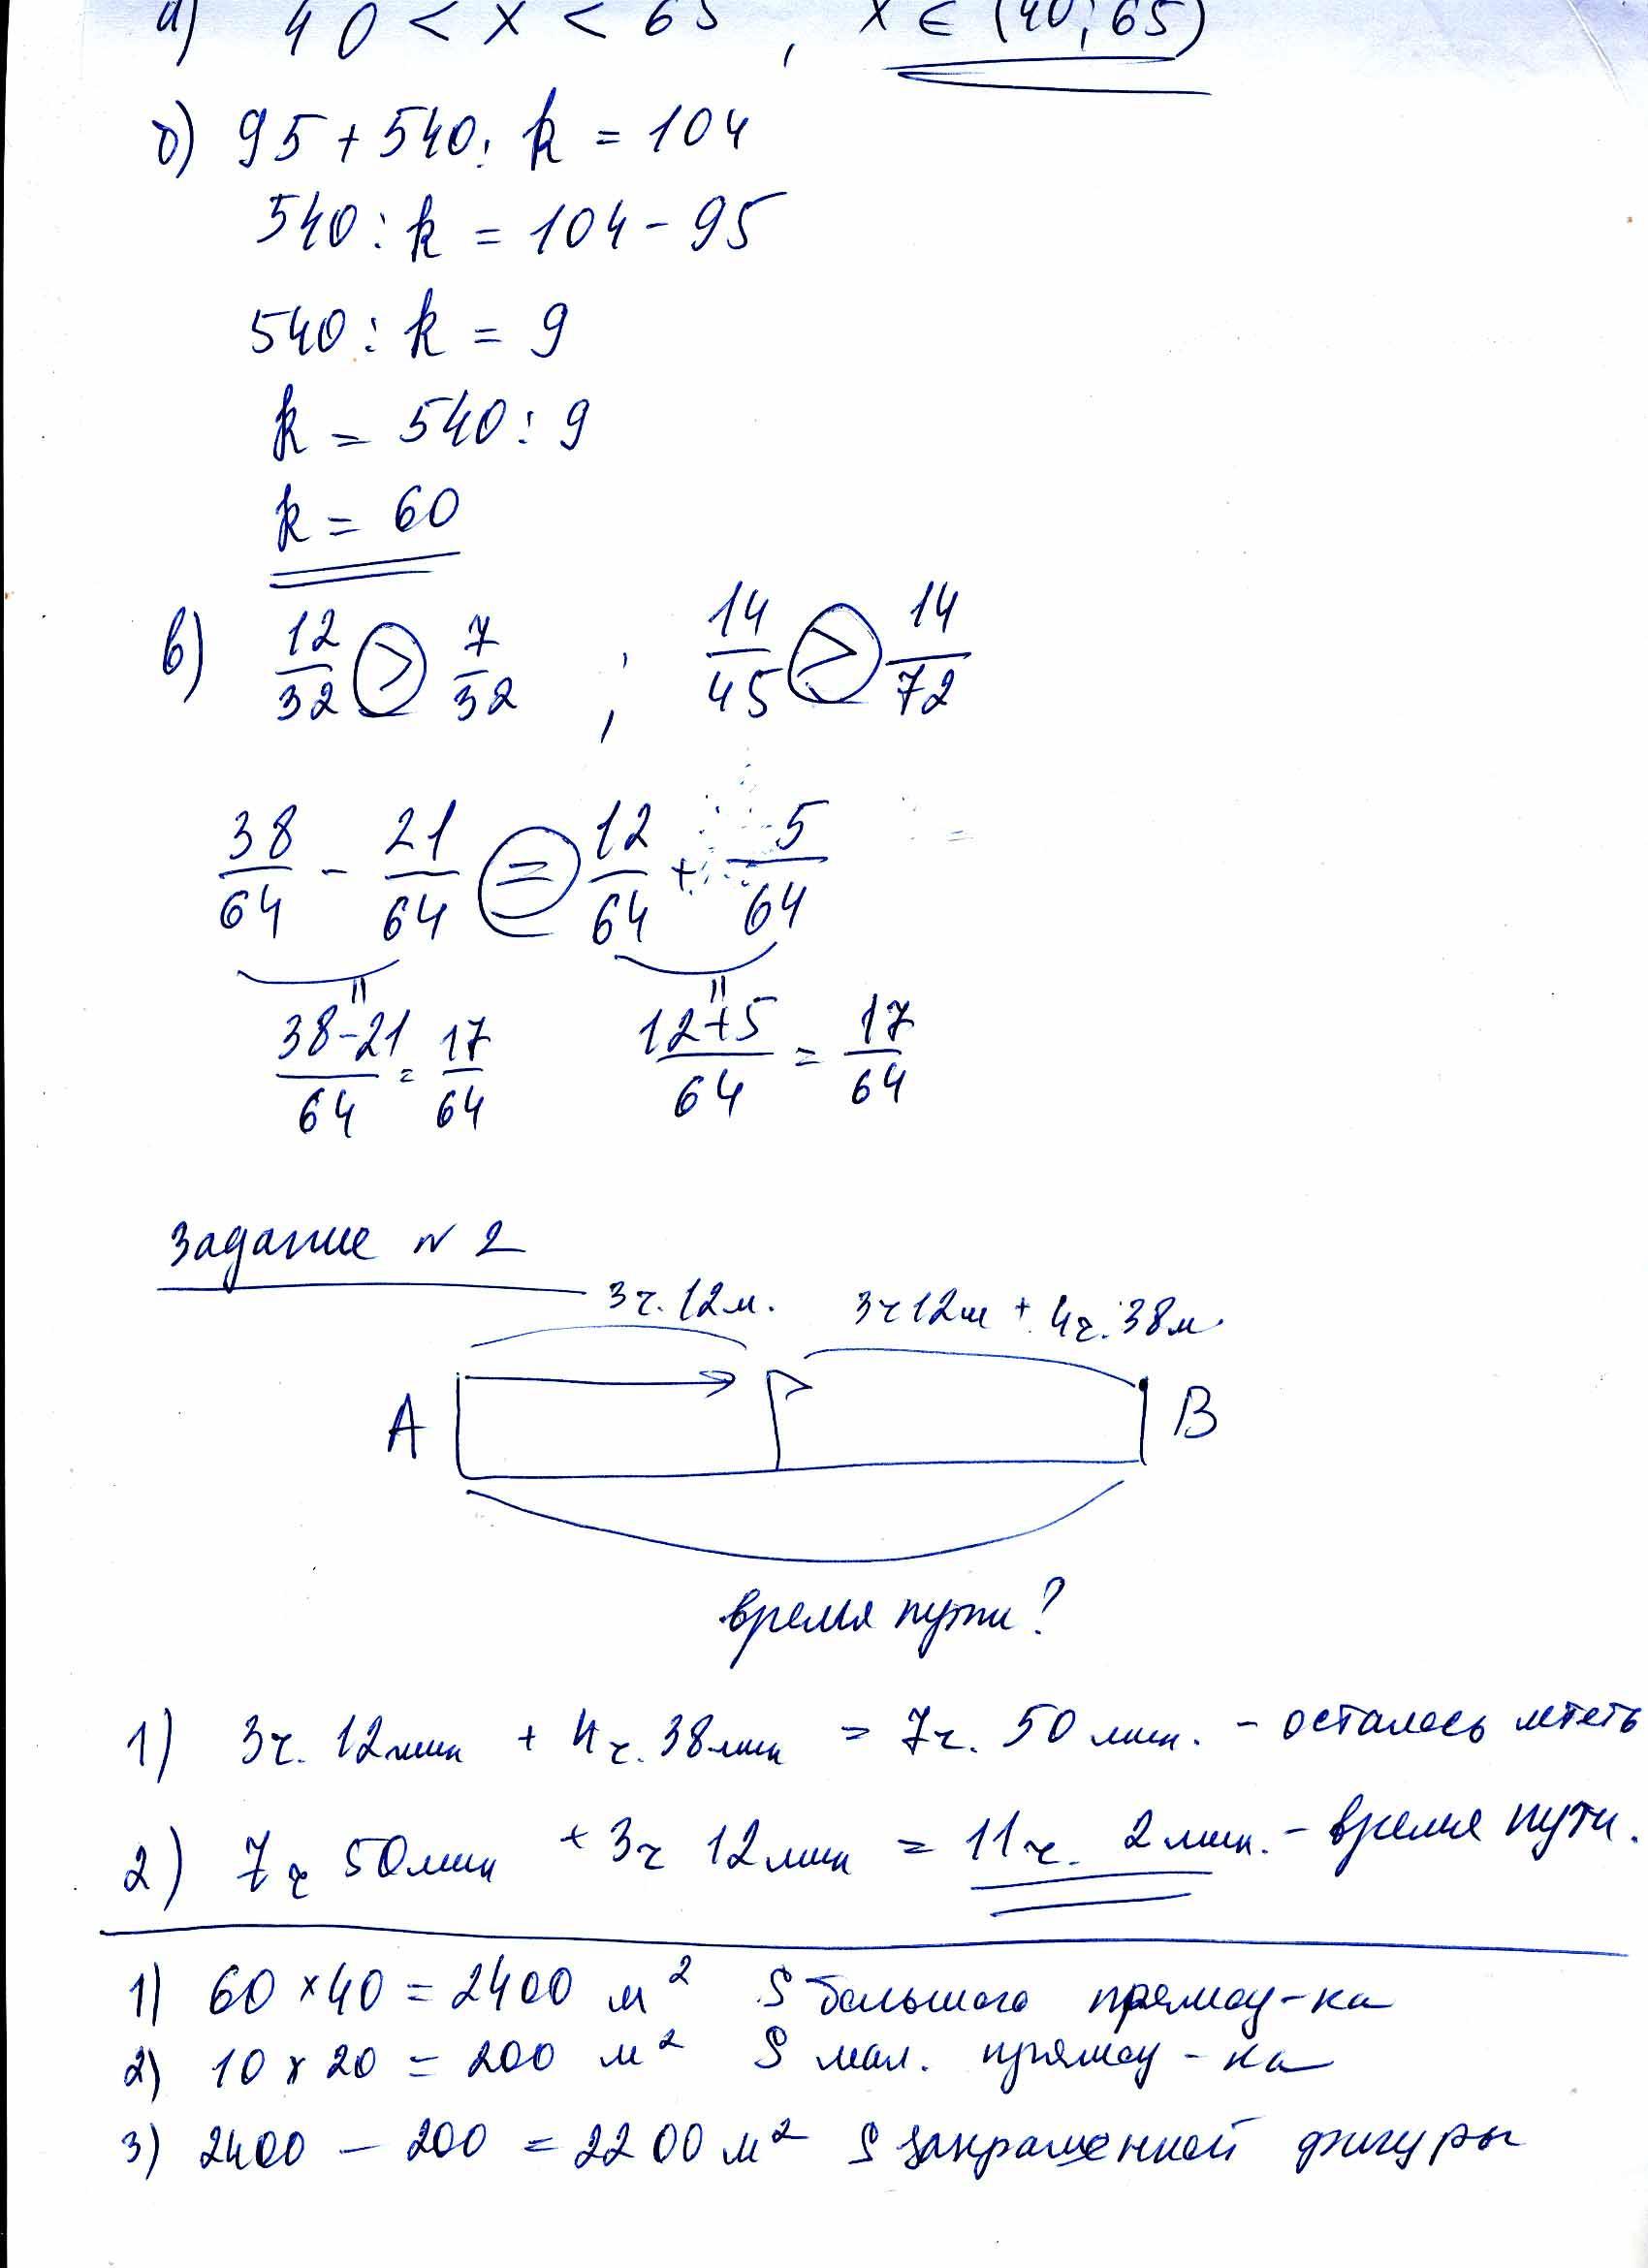 а) 40 < x < 65 , x ∈ (40; 65)
б) 95 + 540 : k = 104
540 : k = 104 - 95
540 : k = 9
k = 540 : 9
k = 60
в) 12/32 > 7/32 ; 14/45 > 14/72
38/64 - 21/64 = 12/64 + 5/64
(38-21)/64 = 17/64 (12+5)/64 = 17/64
Задание N 2
3ч. 12м. 3ч 12м + 4ч. 38м.
A B
время пути?
1) 3ч. 12мин + 4ч. 38мин = 7ч. 50 мин. - осталось
2) 7ч 50мин + 3ч 12мин = 11ч. 2мин. - время пути.
1) 60 × 40 = 2400 м² S большого прямоу-ка
2) 10 × 20 = 200 м² S мал. прямоу-ка
3) 2400 - 200 = 2200 м² S закрашенной фигуры